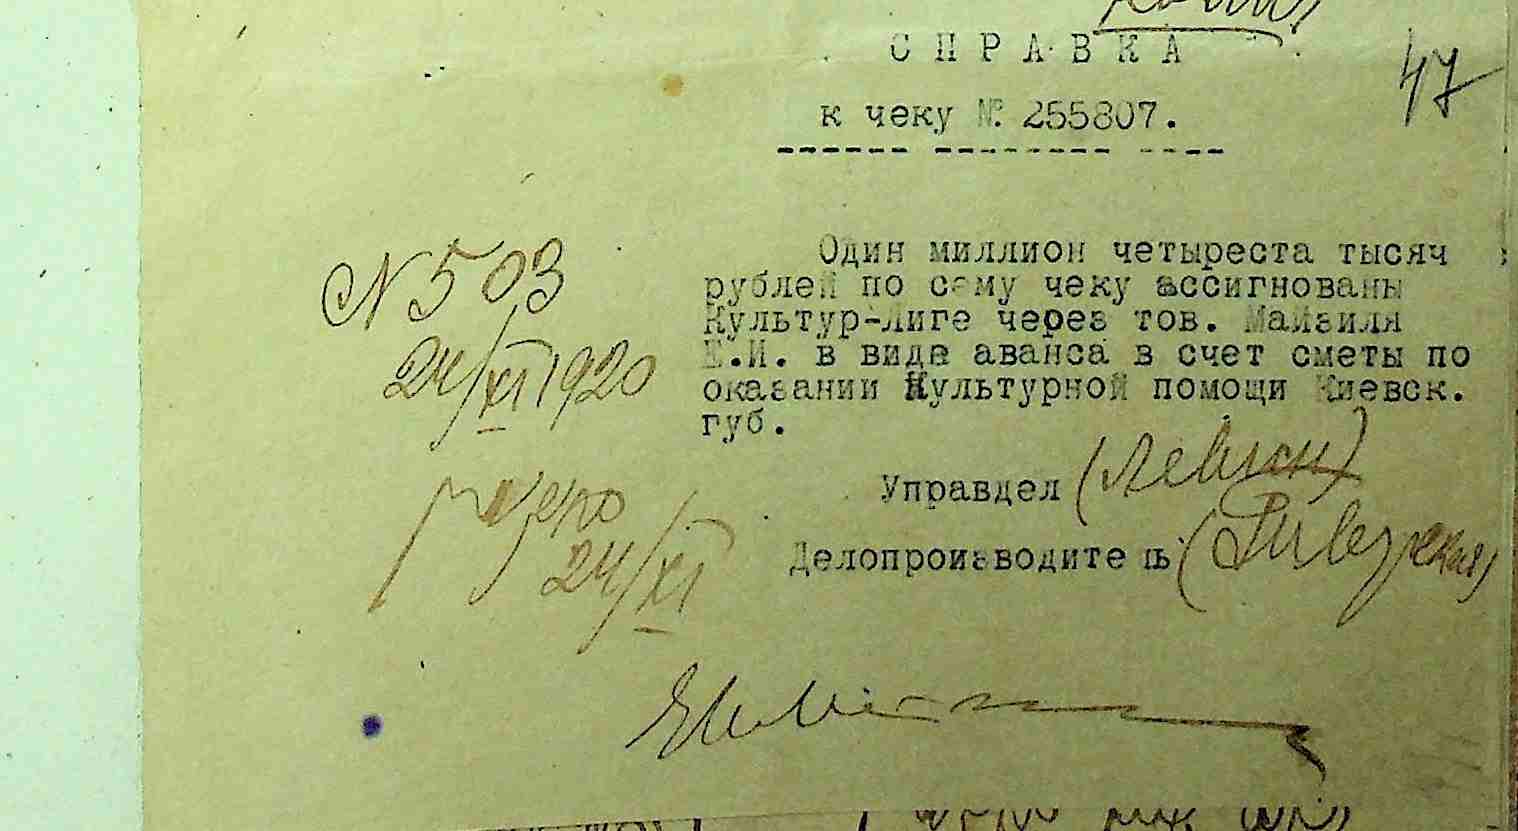 Копия
47
СПРАВКА
к чеку №. 255807.
Один миллион четыреста тысяч
рублей по сему чеку ассигнованы
Культур-Лиге через тов. Майзиля
Е.И. в виде аванса в счет сметы по
оказании Культурной помощи Киевск.
губ.
N 503
24/XI 1920
Управдел (Левин)
Делопроизводитель
24/XI